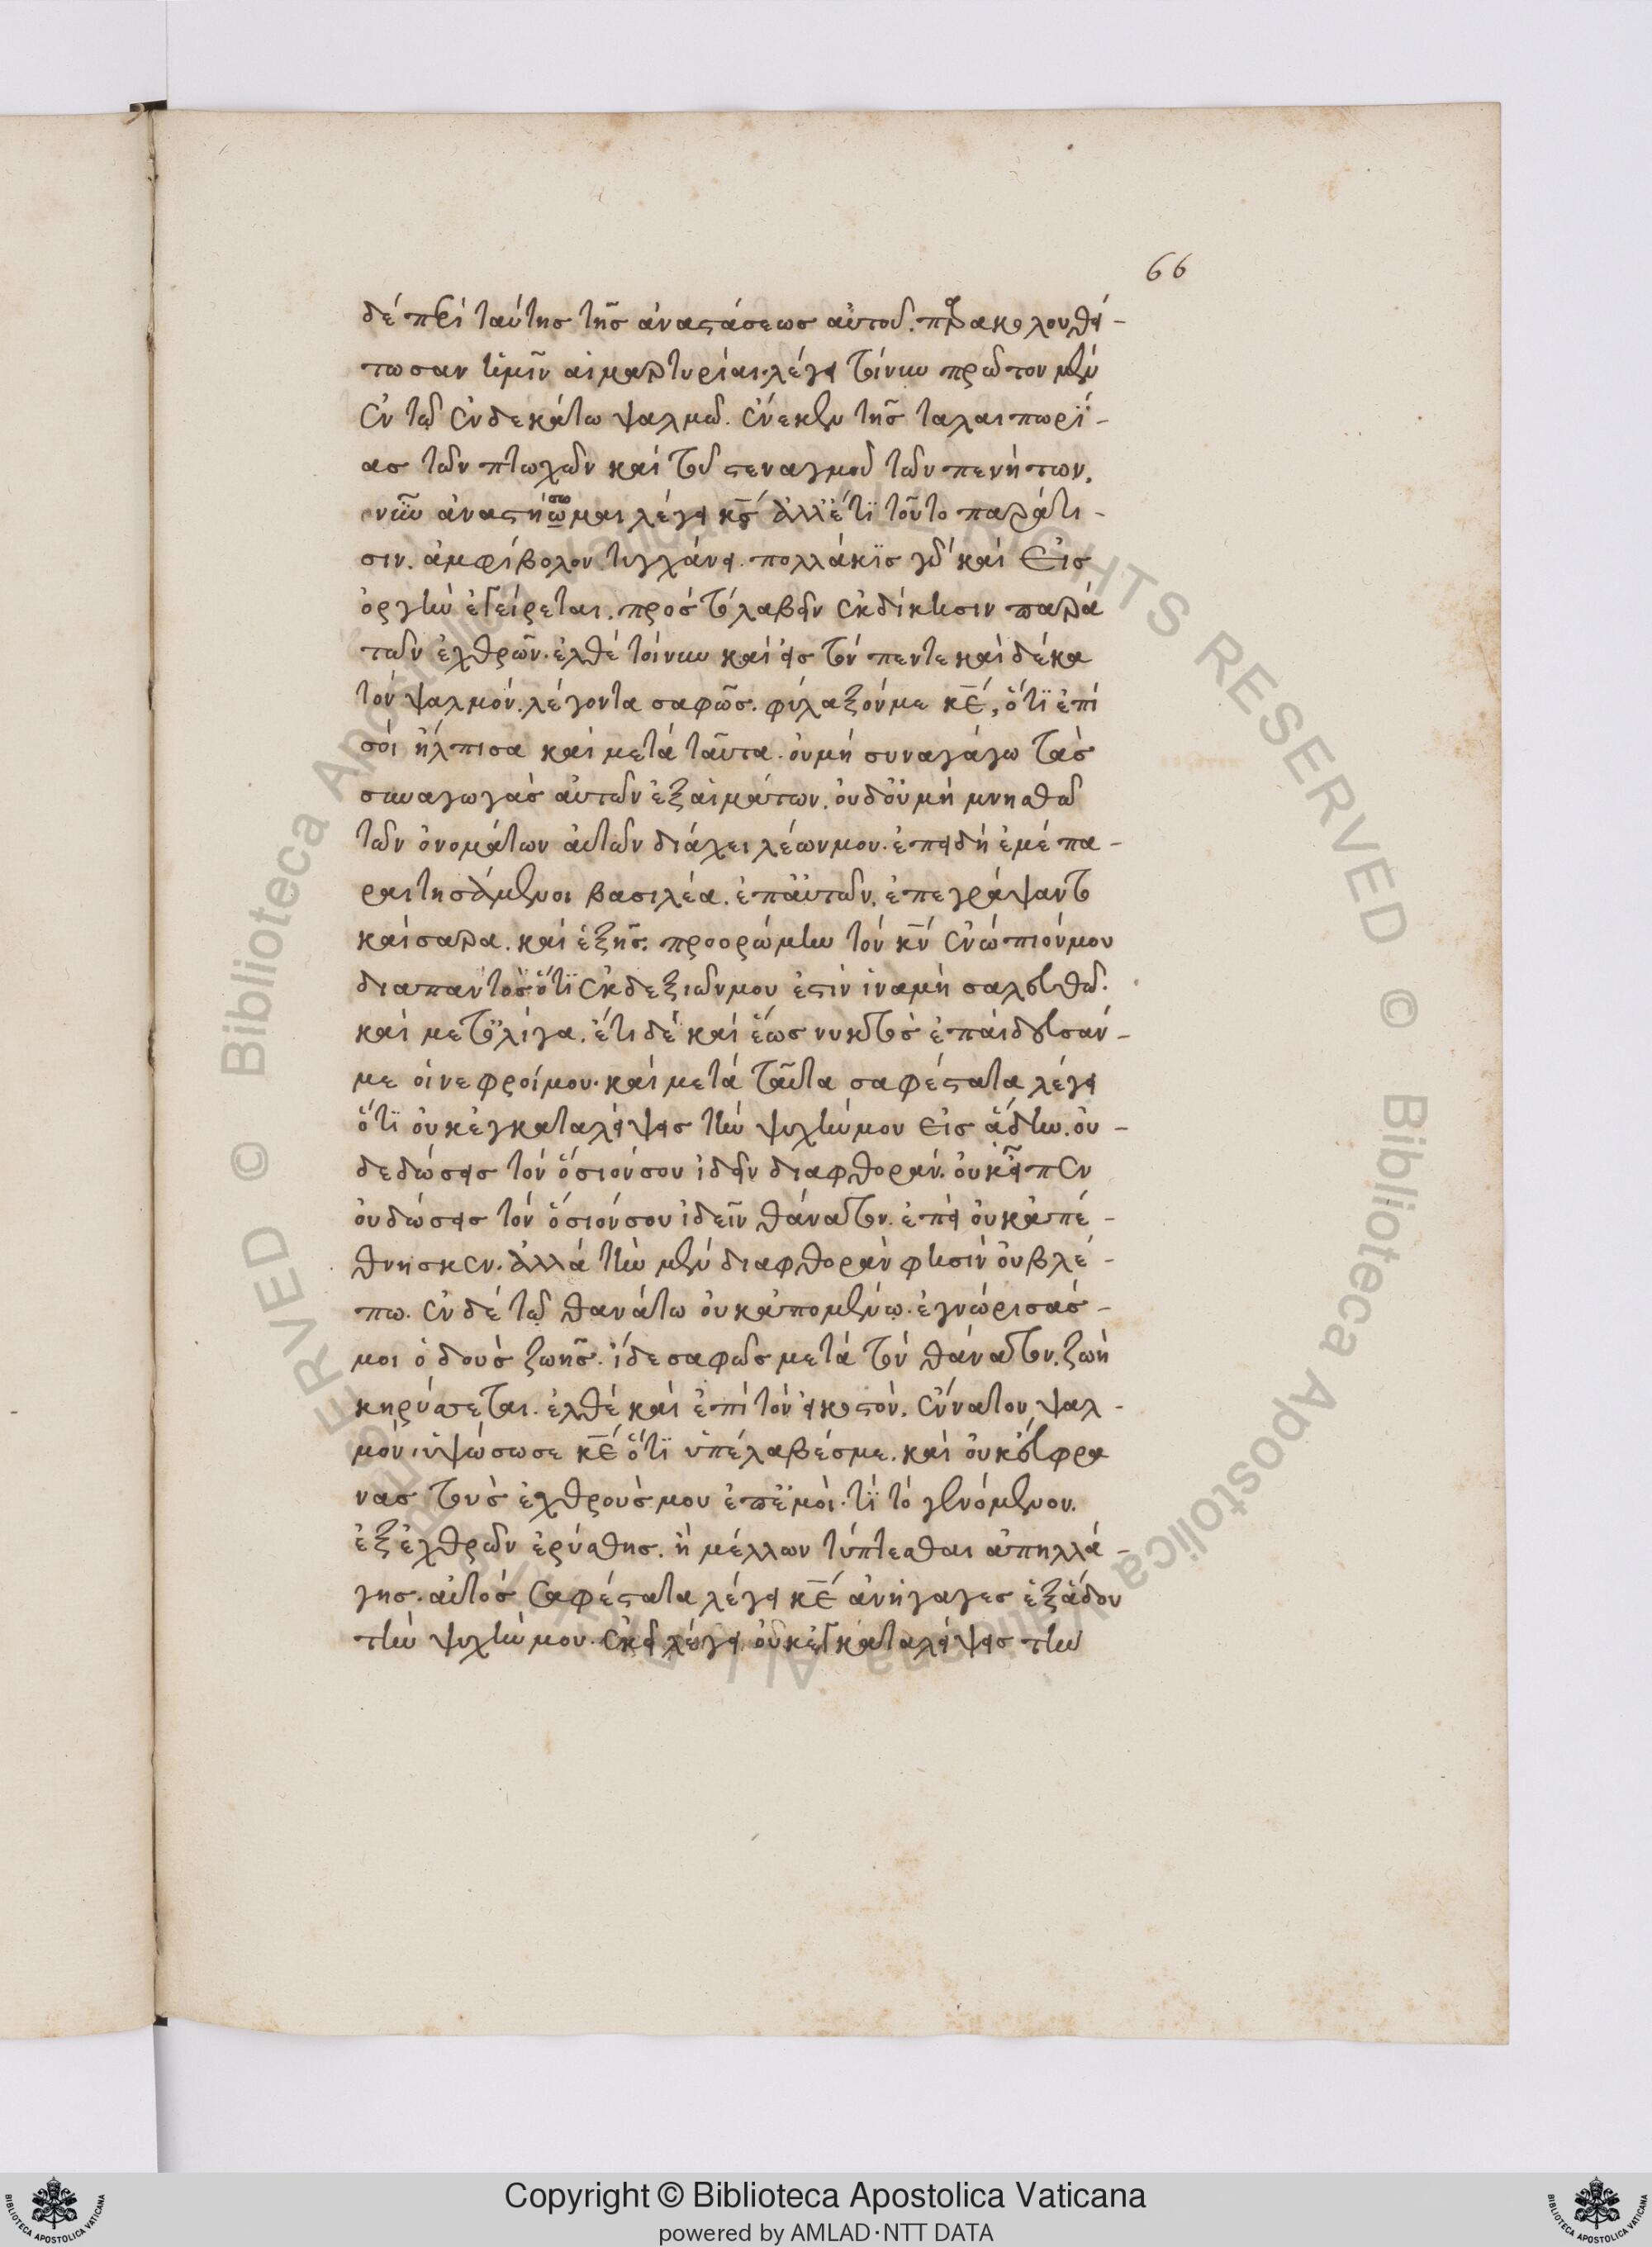 66
δέ περὶ ταύτης τῆς ἀναστάσεως αὐτοῦ. παρακολουθεί-
τωσαν ὑμῖν αἱ μαρτυρίαι. λέγει τοίνυν πρῶτον μὲν
ἐν τῷ ἑνδεκάτω ψαλμῶ. ἕνεκεν τῆς ταλαιπωρί-
ας τῶν πτωχῶν καὶ τοῦ στεναγμοῦ τῶν πενήτων.
νῦν ἀναστήσωμαι λέγει κς ἀλλ' ἔτι τοῦτο παρά τι-
σιν. ἀμφίβολον τυγχάνει. πολλάκις γὰρ καὶ εἰς
ὀργὴν ἐγείρεται. πρὸς τὸ λαβεῖν ἐκδίκησιν παρὰ
τῶν ἐχθρῶν. ἐλθὲ τοίνυν καὶ εἰς τὸν πεντεκαιδέκα
τὸν ψαλμόν. λέγοντα σαφῶς. φύλαξόν με κε, ὅτι ἐπὶ
σοὶ ἤλπισα καὶ μετὰ ταῦτα. οὐ μὴ συναγάγω τὰς
συναγωγὰς αὐτῶν ἐξ αἱμάτων. οὐδ' οὐ μὴ μνησθῶ
τῶν ὀνομάτων αὐτῶν διὰ χειλέων μου. ἐπειδὴ ἐμὲ πα-
ραιτησάμενοι βασιλέα. ἐπ' αὐτῶν. ἐπεγράψαντο
καίσαρα. καὶ ἑξῆς. προορώμην τὸν κν ἐνώπιόν μου
διαπαντὸς ὅτι ἐκ δεξιῶν μου ἐστὶν ἵνα μὴ σαλευθῶ.
καὶ μετ' ὀλίγα. ἔτι δὲ καὶ ἕως νυκτὸς ἐπαίδευσάν-
με οἱ νεφροί μου. καὶ μετὰ ταῦτα σαφέστατα λέγει
ὅτι οὐκ ἐγκαταλείψεις τὴν ψυχήν μου εἰς ἅδην. οὐ-
δὲ δώσεις τὸν ὅσιόν σου ἰδεῖν διαφθοράν. οὐκ εἶπεν
οὐ δώσεις τὸν ὅσιόν σου ἰδεῖν θάνατον. ἐπεὶ οὐκ ἀπέ-
θνησκεν. ἀλλὰ τὴν μὲν διαφθορὰν φησὶν οὐ βλέ-
πω. ἐν δὲ τῷ θανάτω οὐκ ἀπομένω. ἐγνώρισάς-
μοι ὁδοὺς ζωῆς. ἴδε σαφῶς μετὰ τὸν θάνατον. ζωὴ
κηρύσσεται. ἐλθὲ καὶ ἐπὶ τὸν εἰκοστὸν. ἔννατον ψαλ-
μὸν ὑψώσω σε κε ὅτι ὑπέλαβές με. καὶ οὐκ εὔφρα
νας τοὺς ἐχθρούς μου ἐπ' ἐμοί. τί τὸ γενόμενον.
ἐξ ἐχθρῶν ἐρύσθης. ἢ μέλλων τύπτεσθαι ἀπηλλά-
γης. αὐτὸς σαφέστατα λέγει κε ἀνήγαγες ἐξ ἅδου
τὴν ψυχήν μου. ἐκεῖ λέγει οὐκ ἐγκαταλείψεις τὴν
Copyright © Biblioteca Apostolica Vaticana
powered by AMLAD·NTT DATA